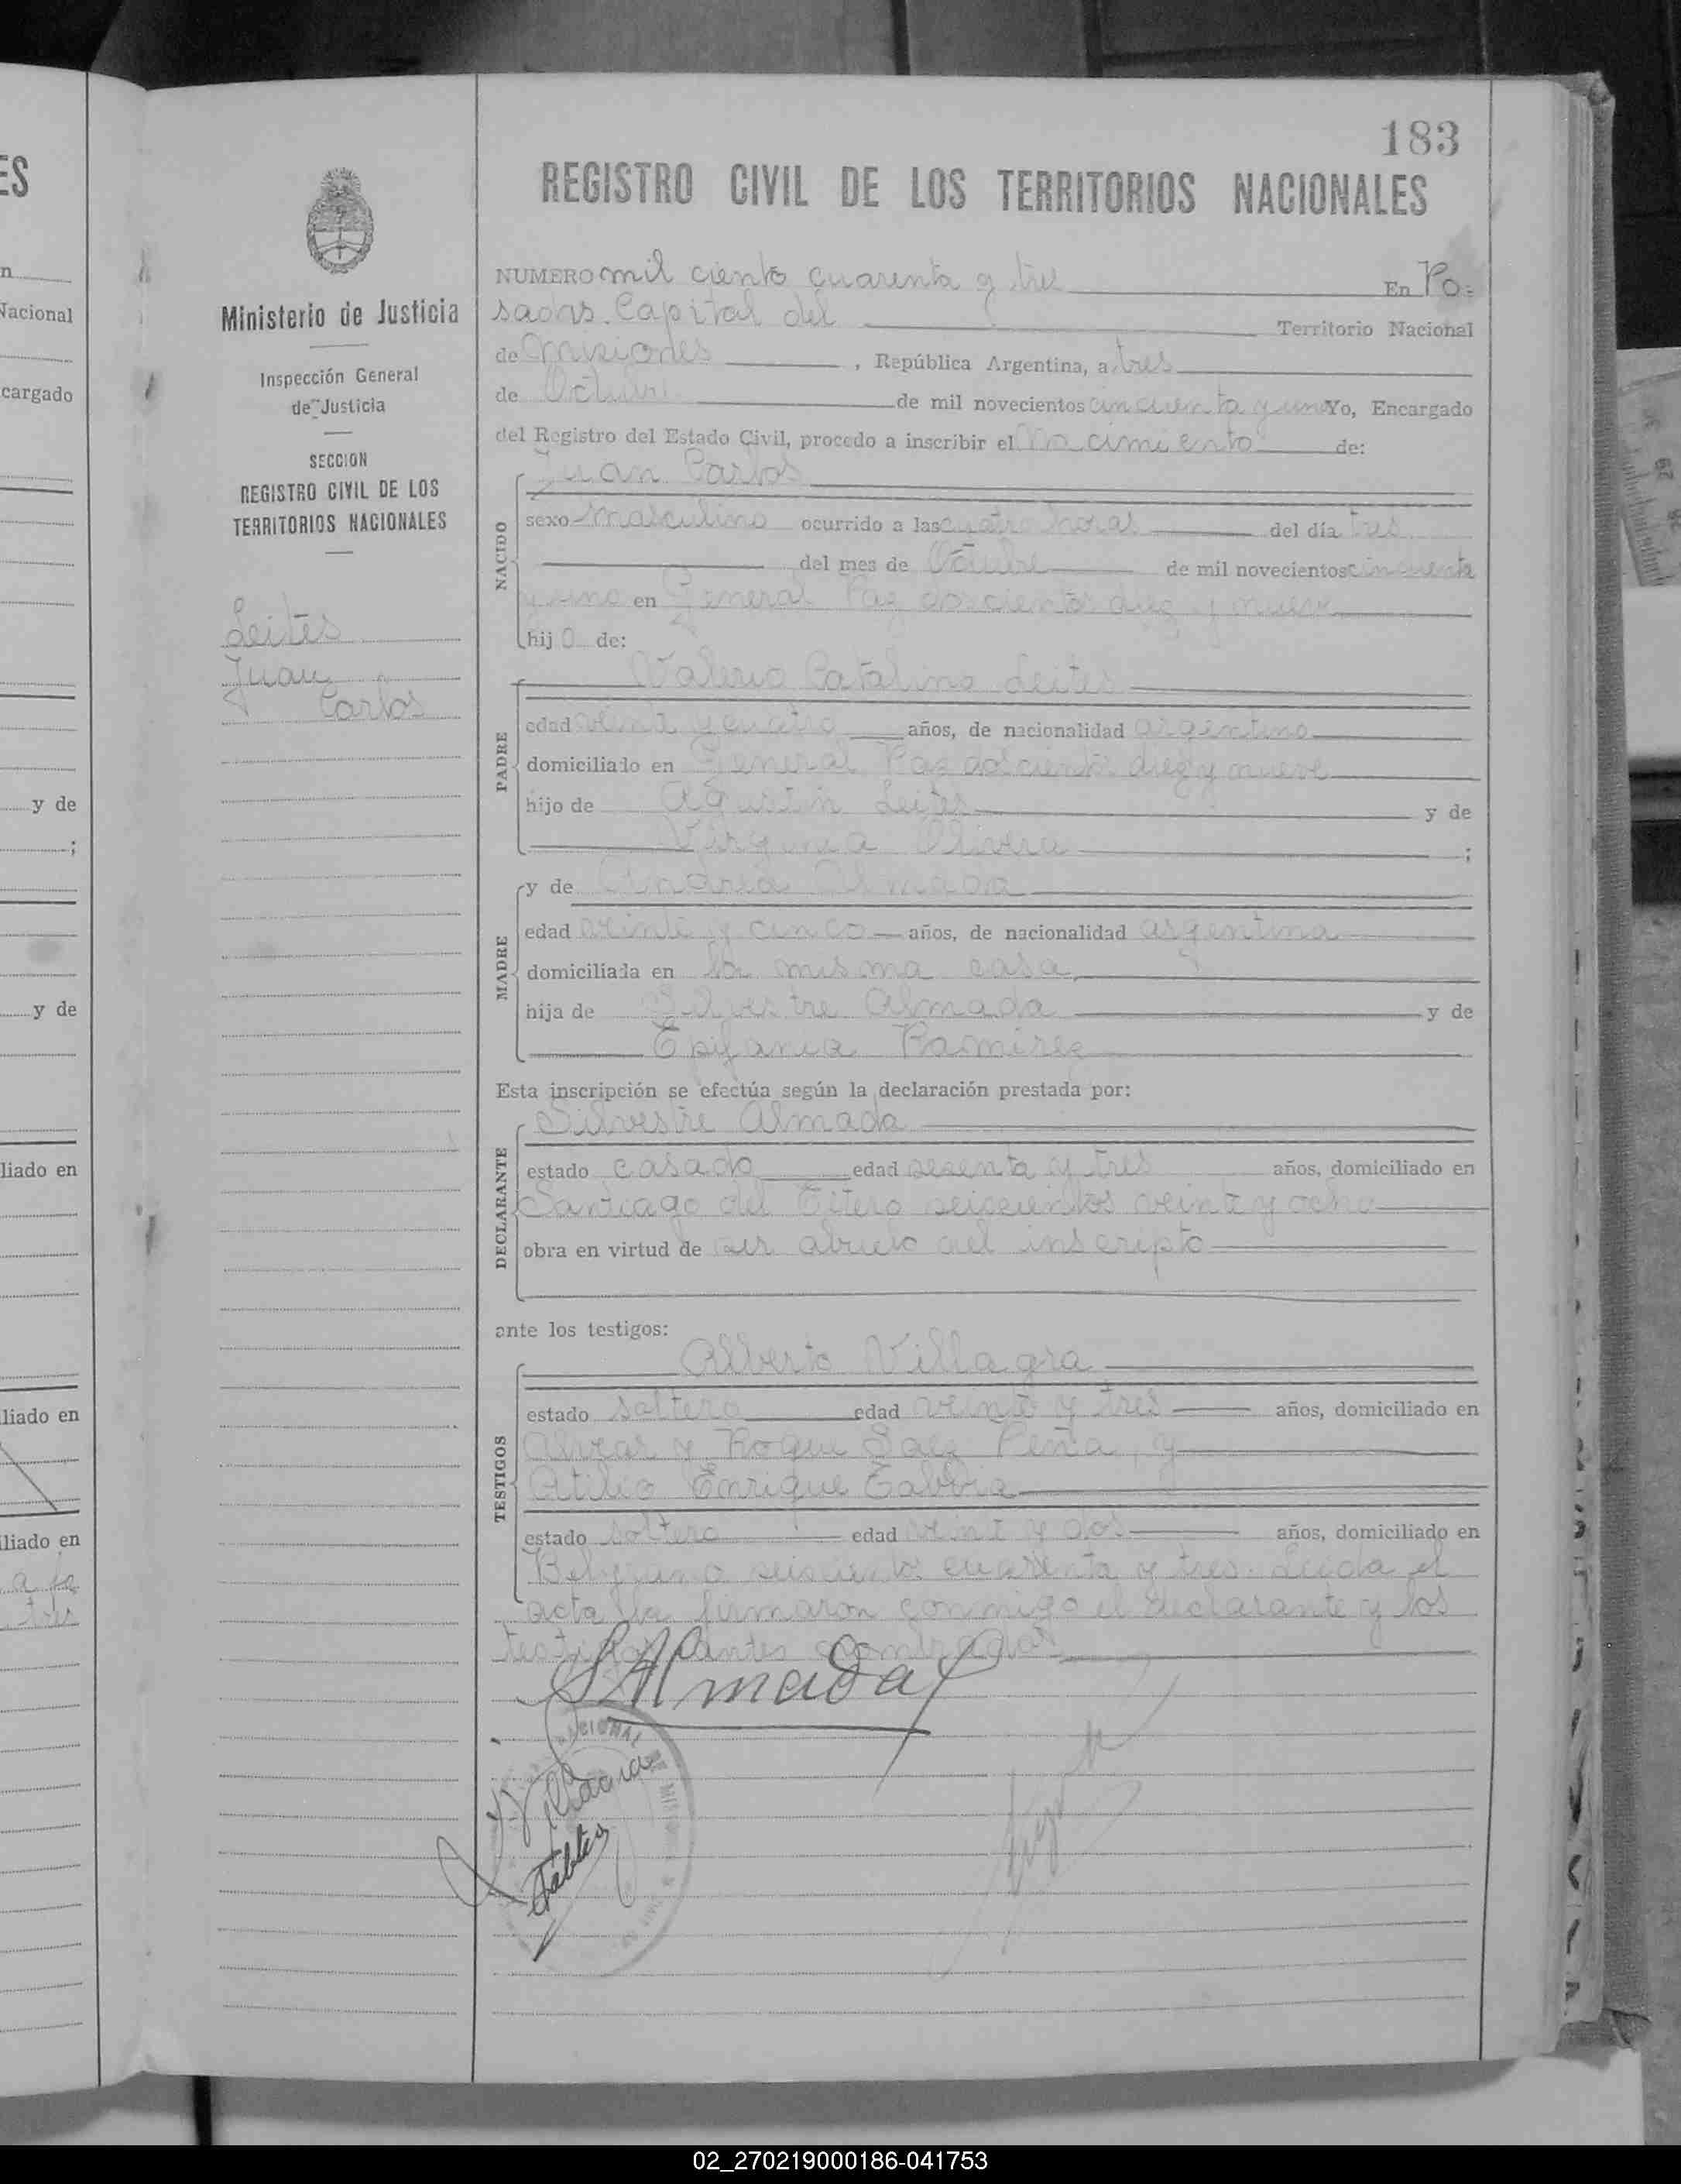 ES
n
Nacional
cargado
y de
;
y de
liado en
liado en
liado en
a fe
tres
Ministerio de Justicia
Inspección General
de Justicia
SECCION
REGISTRO CIVIL DE LOS
TERRITORIOS NACIONALES
Leites
Juan
Carlos
183
REGISTRO CIVIL DE LOS TERRITORIOS NACIONALES
NUMERO mil ciento cuarenta y tres En Po=
sadas. Capital del Territorio Nacional
de Misiones, República Argentina, a tres
de Octubre de mil novecientos cincuenta y uno Yo, Encargado
del Registro del Estado Civil, procedo a inscribir el Nacimiento de:
Juan Carlos
NACIDO
sexo Masculino ocurrido a las cuatro horas del día tres
del mes de Octubre de mil novecientos cincuenta
y uno en General Paz doscientos diez y nueve
hijo de:
Valerio Catalino Leites
PADRE
edad veinte y cuatro años, de nacionalidad argentino
domiciliado en General Paz doscientos diez y nueve
hijo de Agustin Leites y de
Virginia Olivera ;
y de Almada
MADRE
edad veinte y cinco años, de nacionalidad argentina
domiciliada en la misma casa,
hija de Silvestre Almada y de
Epifania Ramirez
Esta inscripción se efectúa según la declaración prestada por:
Silvestre Almada
DECLARANTE
estado casado edad sesenta y tres años, domiciliado en
Santiago del Estero seiscientos veinte y ocho
obra en virtud de ser abuelo del inscripto
ante los testigos:
Alberto Villagra
TESTIGOS
estado soltero edad veinte y tres años, domiciliado en
y Roque Saez Peña, y
Atilio Enrique
estado soltero edad veinte y dos años, domiciliado en
Belgrano seiscientos cuarenta y tres. Leida el
acta la firmaron conmigo el declarante y los
testigos antes nombrados
S Almada
Villagra
NACIONAL DE MIS
02_270219000186-041753